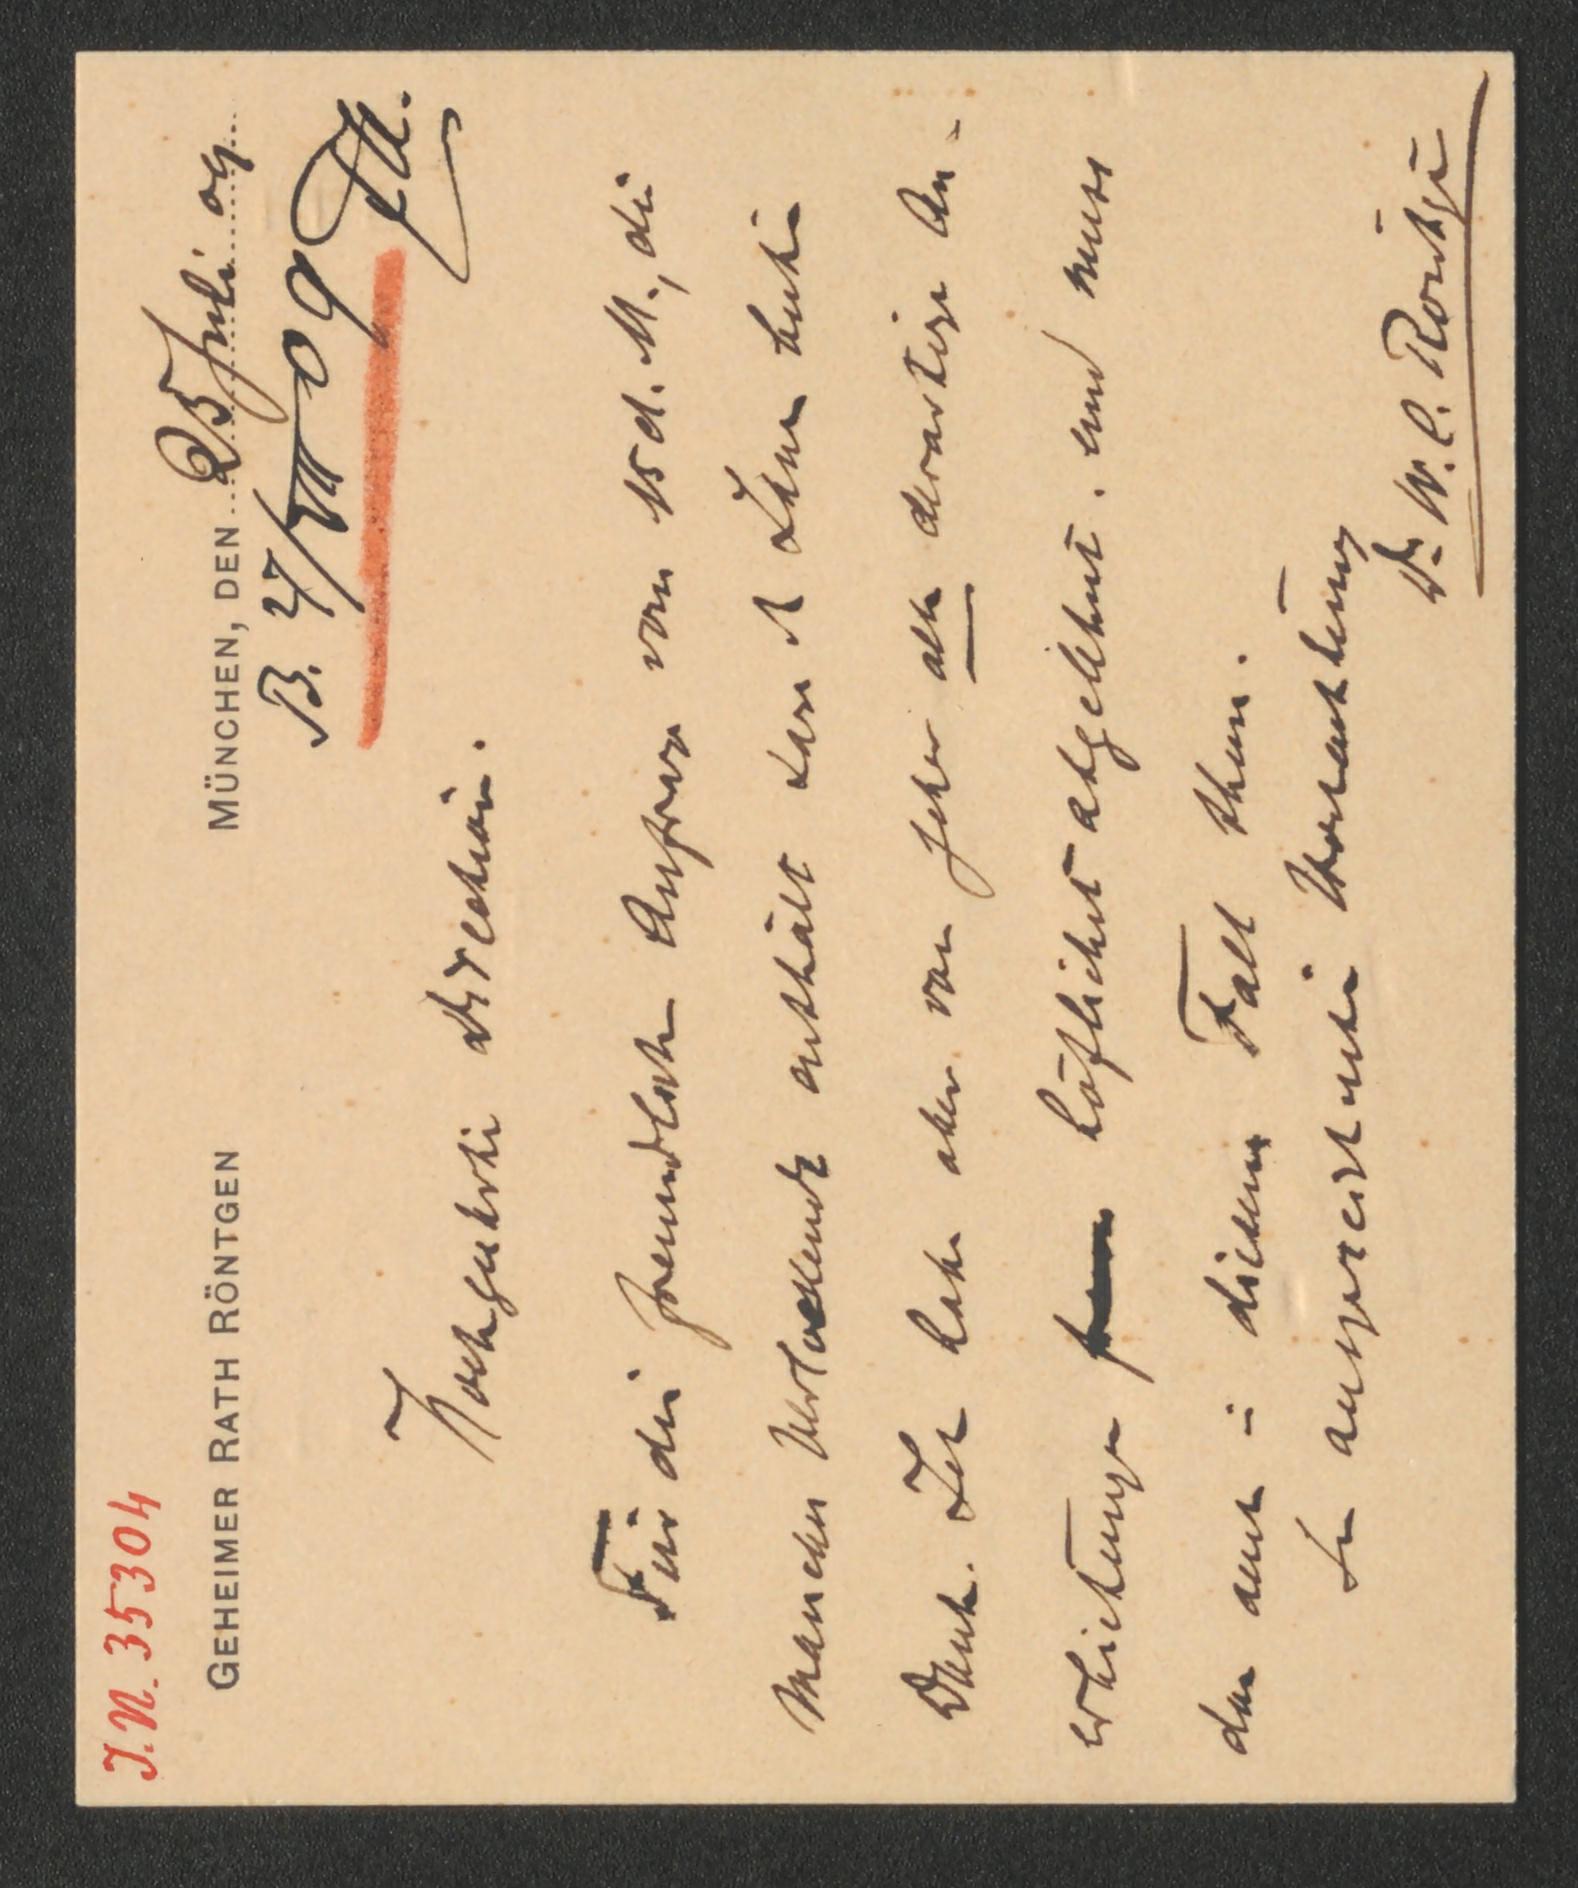 J.N. 35304
GEHEIMER RATH RÖNTGEN MÜNCHEN, DEN 25 Juli 09.
B. 27/VII 09
Hochgeehrte Direction.
Für die freundliche Anfrage vom 15 d. M., die
manches Verlockende enthält sage ich Ihnen besten
Dank. Ich habe aber von jeher alle derartige An-
erbietungen höflichst abgelehnt. und muss
das auch in diesem Fall thun.
In ausgezeichneter Hochachtung
Dr W. C. Röntgen